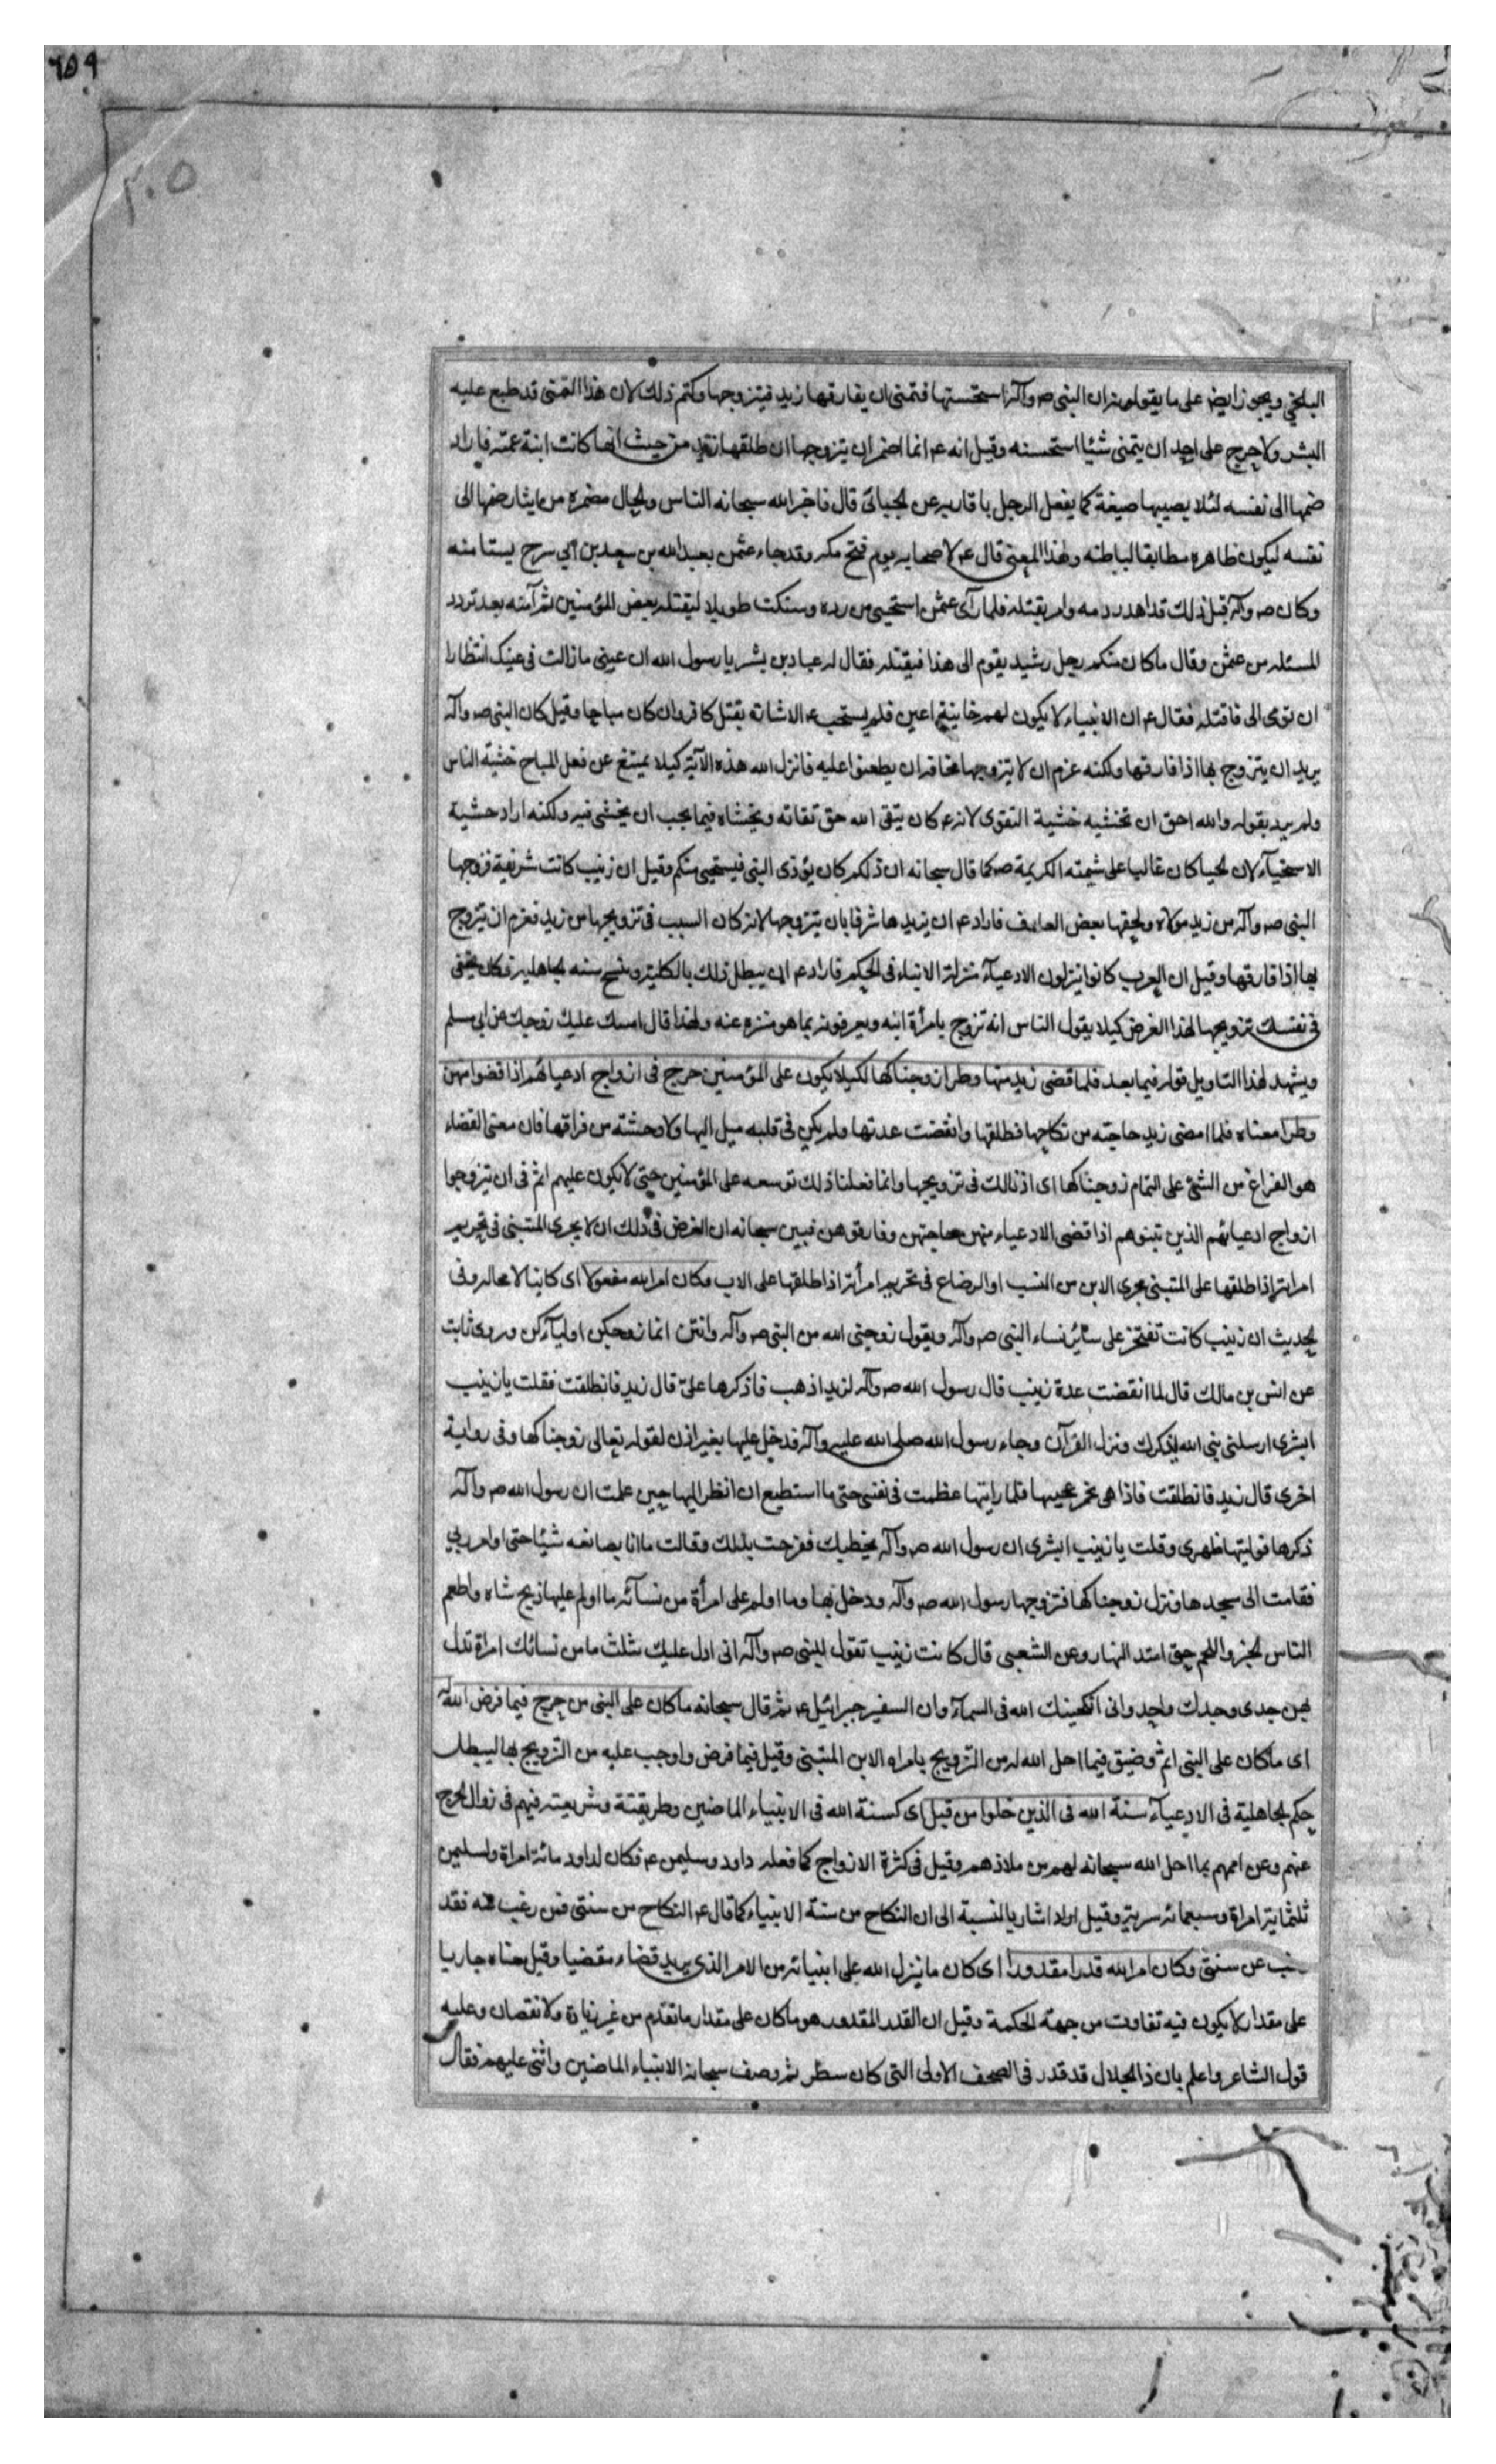 ٦٥٩
٢٠٥
البلخي ويجوز ايض على ما يقولونه ان النبى صم وآله استحسنها فتمنى ان يفارقها زيد فيتزوجها وكتم ذلك لان هذا التمنى قد طبع عليه
البشر ولا حرج على احد ان يتمنى شيئا استحسنه وقيل انه ع انما اضمر ان يتزوجها ان طلقها زيد من حيث انها كانت ابنة عمته فاراد
ضمها الى نفسه لئلا يصيبها ضيعة كما يفعل الرجل باقاربه عن الجبائى قال فاخبر الله سبحانه الناس والحال مضمره من ايثار ضمها الى
نفسه ليكون ظاهره مطابقا لباطنه ولهذا المعنى قال ع لاصحابه يوم فتح مكه وقد جاء عثمن بعبد الله بن سعد بن ابي سرح يستامنه
وكان صم وآله قبل ذلك قد اهدر دمه وامر بقتله فلما رآى عثمن استحيى من رده وسكت طويلا ليقتله بعض المؤمنين ثم آمنه بعد تردد
المسئله من عثمن وقال ماكان منكم رجل رشيد يقوم الى هذا فيقتله فقال له عباد بن بشر يا رسول الله ان عينى ما زالت فى عينك انتظارا
ان تومى الى فاقتله فقال ع ان الانبياء لا يكون لهم خاينة اعين فلم يستحب ع الاشارة بقتل كافر وان كان مباحا وقيل كان النبى صم وآله
يريد ان يتزوج بها اذا فارقها ولكنه عزم ان لا يتزوجها مخافة ان يطعنوا عليه فانزل الله هذه الآية كيلا يمتنع عن فعل المباح خشية الناس
ولم يرد بقوله والله احق ان تخشيه خشية التقوى لانه ع كان يتقى الله حق تقاته ويخشاه فيما يجب ان يخشى فيه ولكنه اراد خشية
الاستحيآء لان الحيا كان غالبا على شيمته الكريمة صم كما قال سبحانه ان ذلكم كان يؤذى النبى فيستحيى منكم وقيل ان زينب كانت شريفة فزوجها
النبى صم وآله من زيد مولاه ولحقها بعض العار فاراد ع ان يزيدها شرفا بان يتزوجها لانه كان السبب فى تزويجها من زيد فعزم ان يتزوج
بها اذا فارقها وقيل ان العرب كانوا ينزلون الادعيآء منزلة الابناء فى الحكم فاراد ع ان يبطل ذلك بالكلية وينسخ سنه الجاهلية فكان يخفى
فى نفسك تزويجها لهذا الغرض كيلا يقول الناس انه تزوج بامرأة ابنه ويعرفونه بما هو منزه عنه ولهذا قال امسك عليك زوجك عن ابي مسلم
ويشهد لهذا التاويل قوله فيما بعد فلما قضى زيد منها وطرا زوجناكها لكيلا يكون على المؤمنين حرج فى ازواج ادعيائهم اذا قضوا منهن
وطرا معناه فلما امضى زيد حاجته من نكاحها فطلقها وانقضت عدتها ولم يكن فى قلبه ميل اليها ولا وحشته من فراقها فان معنى القضاء
هو الفراغ من الشئ على التمام زوجناكها اى اذنا لك فى تزويجها وانما فعلنا ذلك توسعه على المؤمنين حتى لا يكون عليهم اثم فى ان يتزوجوا
ازواج ادعيائهم الذين تبنوهم اذا قضى الادعياء منهن حاجتهن وفارقوهن فبين سبحانه ان الغرض فى ذلك ان لا يجرى المتبنى فى تحريم
امراته اذا طلقها على المتبنى مجرى الابن من النسب او الرضاع فى تحريم امرأته اذا طلقها على الاب وكان امر الله مفعولا اى كاينا لا محالة وفى
الحديث ان زينب كانت تفتخر على سائر نساء النبى صم وآله ويقول زوجنى الله من النبى صم وآله وانتن انما زوجكن اوليآءكن وروى ثابت
عن انس بن مالك قال لما انقضت عدة زينب قال رسول الله صم وآله لزيد اذهب فاذكرها علىّ قال زيد فانطلقت فقلت يا زينب
ابشرى ارسلنى نبى الله بذكرك ونزل القرآن وجاء رسول الله صلى الله عليه وآله فدخل عليها بغير اذن لقوله تعالى زوجناكها وفى رواية
اخرى قال زيد فانطلقت فاذا هى تخمر عجينها فلما رايتها عظمت فى نفسى حتى ما استطيع ان انظر اليها حين علمت ان رسول الله صم وآله
ذكرها فوليتها ظهرى وقلت يا زينب ابشرى ان رسول الله صم وآله يخطبك ففرحت بذلك وقالت ما انا بصانعه شيئا حتى اوامر ربي
فقامت الى مسجدها ونزل زوجناكها فتزوجها رسول الله صم وآله ودخل بها وما اولم على امرأة من نسآئه ما اولم عليها ذبح شاه واطعم
الناس الخبز واللحم حتى امتد النهار وعن الشعبى قال كانت زينب تقول للنبى صم وآله انى لادل عليك بثلث مامن نسائك امراة تدل
بهن جدى وجدك واحد وانى انكحنيك الله فى السمآء وان السفير جبرائيل ع ثم قال سبحانه ماكان على النبى من حرج فيما فرض الله له
اى ماكان على النبى اثم وضيق فيما احل الله له من التزويج بامراه الابن المتبنى وقيل فيما فرض واوجب عليه من التزويج بها ليبطل
حكم الجاهلية فى الادعيآء سنة الله فى الذين خلوا من قبل اى كسنة الله فى الانبياء الماضين وطريقتة وشريعته فيهم فى زوال الحرج
عنهم وعن اممهم بما احل الله سبحانه لهم من ملاذهم وقيل فى كثرة الازواج كما فعله داود وسليمن ع فكان لداود مائة امراة ولسليمن
ثلثمائة امراة وسبعمائه سرية وقيل اولا اشار بالنسبة الى ان النكاح من سنة الانبياء كما قال ع النكاح من سنتى فمن رغب عنه فقد
رغب عن سنتى وكان امر الله قدرا مقدورا اى كان ما ينزل الله على انبيائه من الامر الذى يريد قضاء مقضيا وقيل معناه جاريا
على مقدار لا يكون فيه تفاوت من جهة الحكمة وقيل ان القدر المقدور هو ماكان على مقدار ما تقدم من غير زيادة ولا نقصان وعليه
قول الشاعر واعلم بان ذا الجلال قد قدر فى الصحف الاولى التى كان سطر ثم وصف سبحانه الانبياء الماضين واثنى عليهم فقال